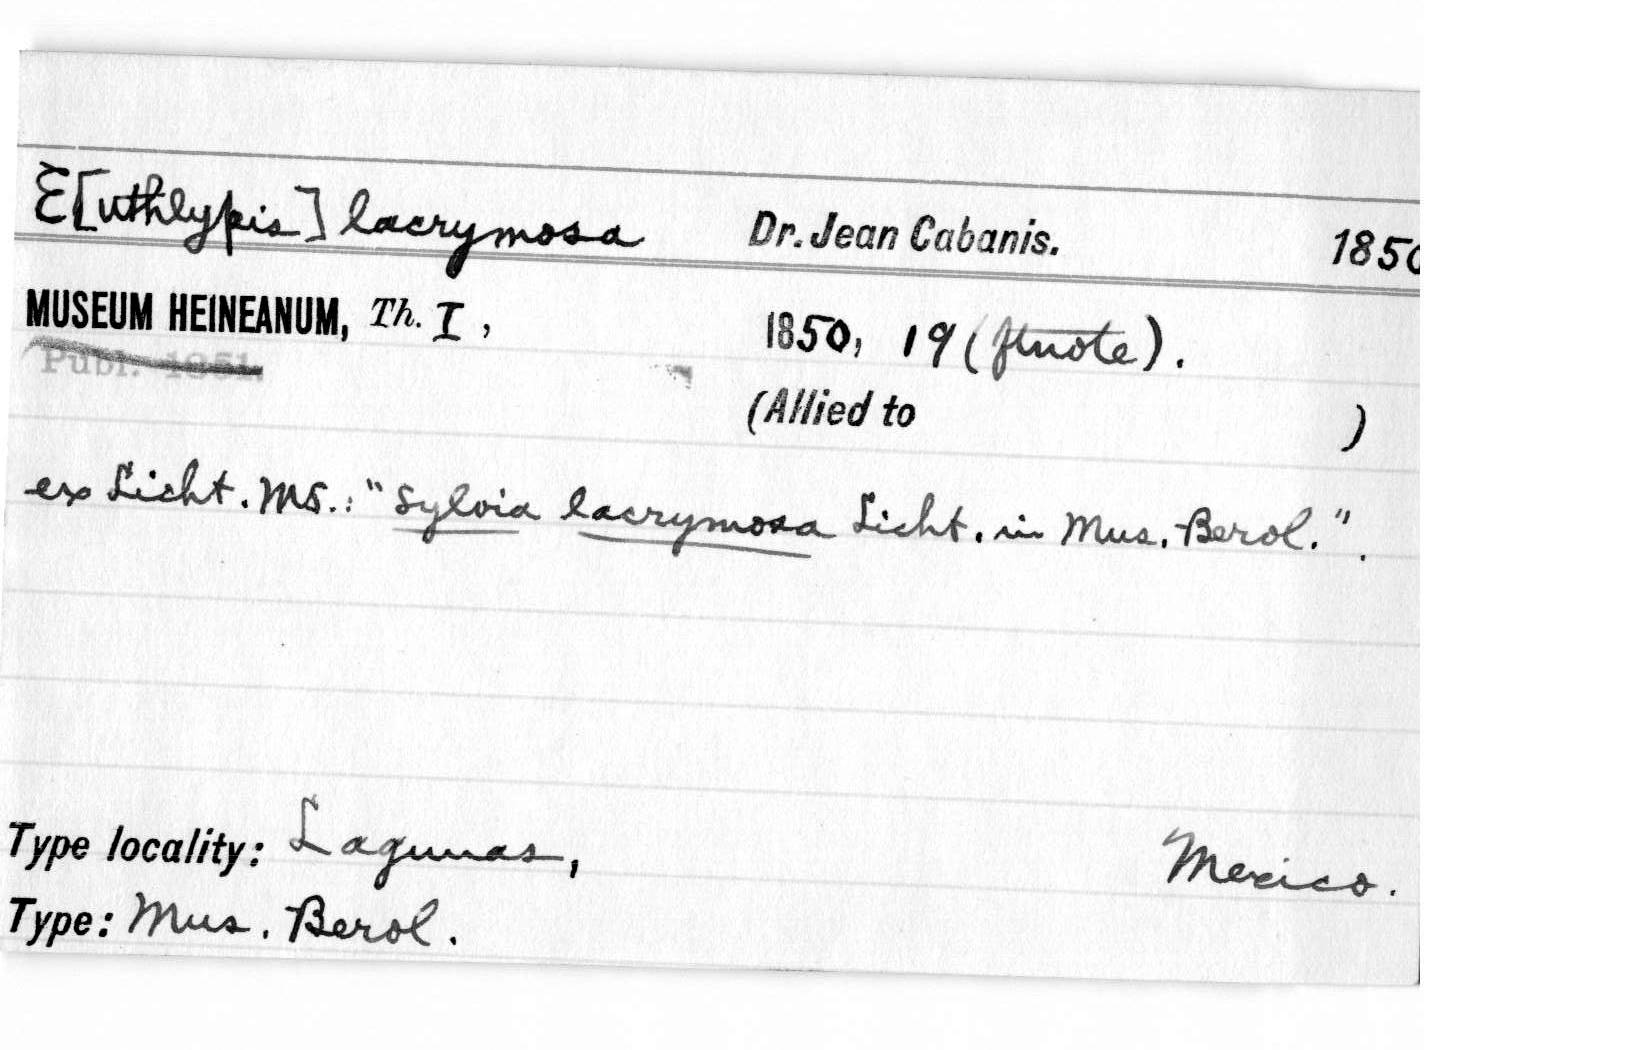 E[uthlypis] lacrymosa Dr. Jean Cabanis. 1850
MUSEUM HEINEANUM, Th. I, 1850, 19 (ftnote).
Publ. 1851.
(Allied to )
ex Licht. MS.: "Sylvia lacrymosa Licht. in Mus. Berol.".
Type locality: Lagunas, Mexico.
Type: Mus. Berol.